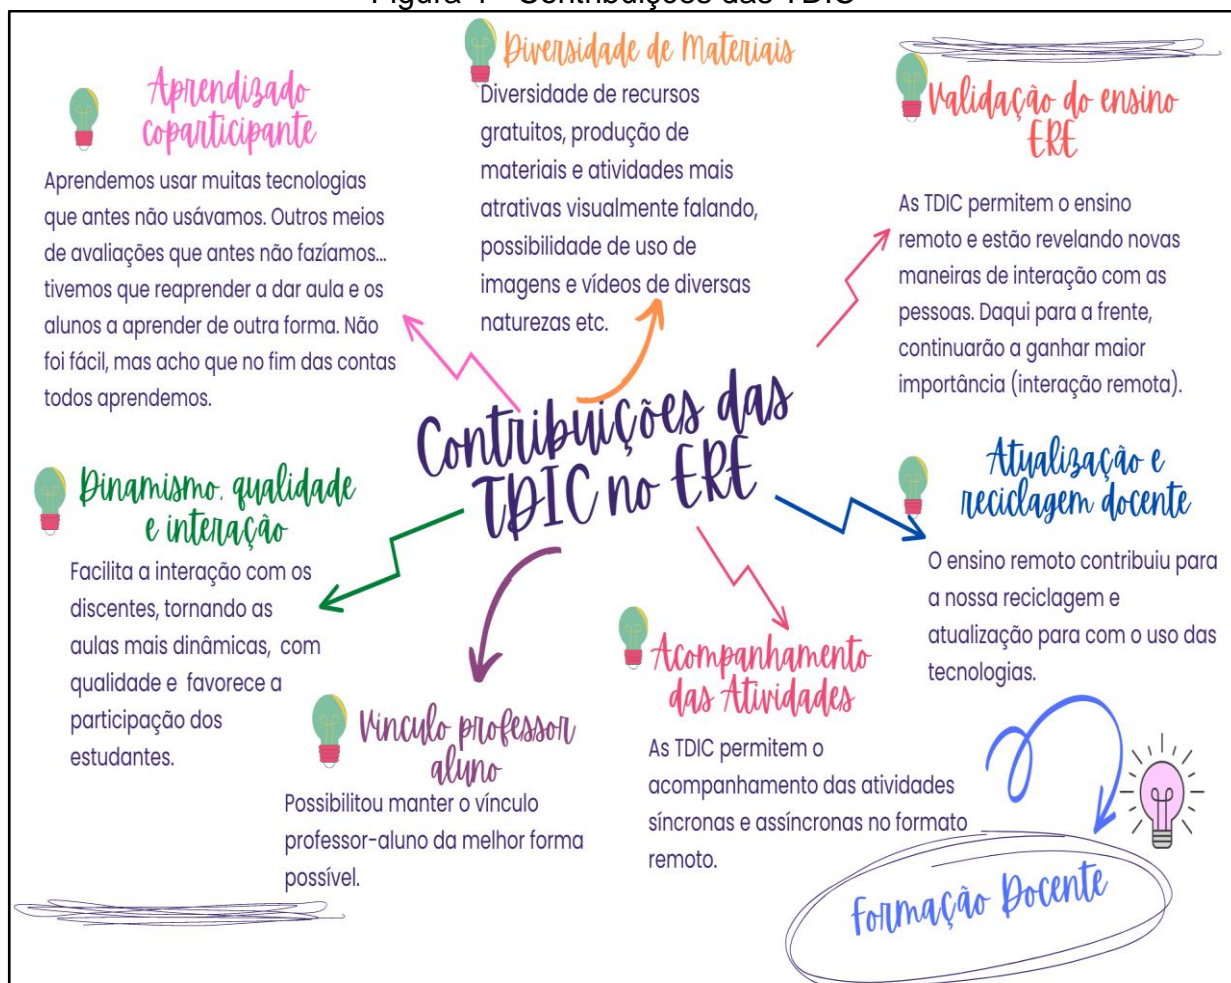 Figura 4 - Contribuições das TDIC
Aprendizado
coparticipante
Aprendemos usar muitas tecnologias
que antes não usávamos. Outros meios
de avaliações que antes não fazíamos...
tivemos que reaprender a dar aula e os
alunos a aprender de outra forma. Não
foi fácil, mas acho que no fim das contas
todos aprendemos.
Diversidade de Materiais
Diversidade de recursos
gratuitos, produção de
materiais e atividades mais
atrativas visualmente falando,
possibilidade de uso de
imagens e vídeos de diversas
naturezas etc.
Validação do ensino
ERE
As TDIC permitem o ensino
remoto e estão revelando novas
maneiras de interação com as
pessoas. Daqui para a frente,
continuarão a ganhar maior
importância (interação remota).
Contribuições das
TDIC no ERE
Dinamismo, qualidade
e interação
Facilita a interação com os
discentes, tornando as
aulas mais dinâmicas, com
qualidade e favorece a
participação dos
estudantes.
Vínculo professor
aluno
Possibilitou manter o vínculo
professor-aluno da melhor forma
possível.
Acompanhamento
das Atividades
As TDIC permitem o
acompanhamento das atividades
síncronas e assíncronas no formato
remoto.
Atualização e
reciclagem docente
O ensino remoto contribuiu para
a nossa reciclagem e
atualização para com o uso das
tecnologias.
Formação Docente